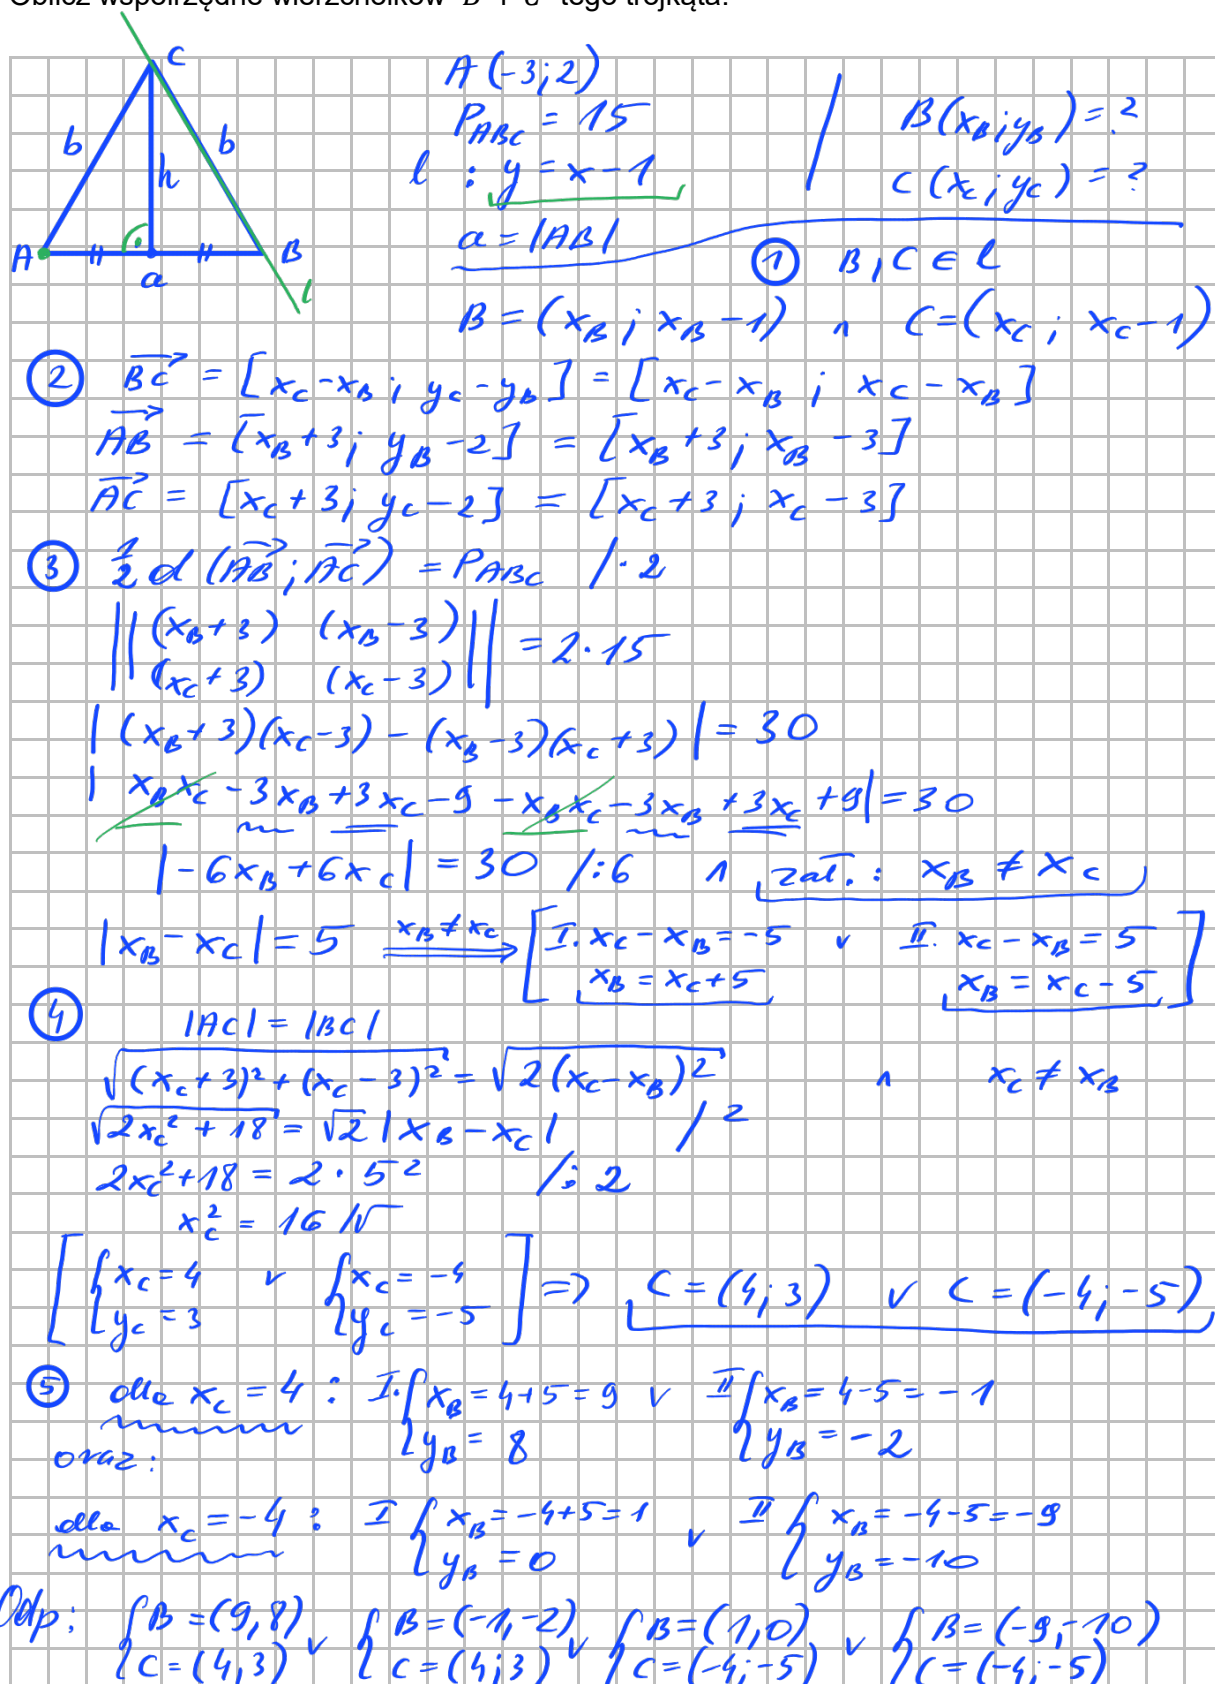 Oblicz współrzędne wierzchołków B i C tego trójkąta.
C
b b
h
A a B
l
A(-3;2)
P_ABC = 15
l : y = x-1
a = |AB|
B(x_B; y_B) = ?
C(x_C; y_C) = ?
① B, C ∈ l
B = (x_B; x_B-1) ∧ C = (x_C; x_C-1)
② BC→ = [x_C-x_B; y_C-y_B] = [x_C-x_B; x_C-x_B]
AB→ = [x_B+3; y_B-2] = [x_B+3; x_B-3]
AC→ = [x_C+3; y_C-2] = [x_C+3; x_C-3]
③ 1/2 d(AB→; AC→) = P_ABC /·2
||(x_B+3) (x_B-3)|| = 2·15
(x_C+3) (x_C-3)
|(x_B+3)(x_C-3) - (x_B-3)(x_C+3)| = 30
|x_B x_C - 3x_B + 3x_C - 9 - x_B x_C - 3x_B + 3x_C + 9| = 30
|-6x_B + 6x_C| = 30 /:6 ∧ zał.: x_B ≠ x_C
|x_B - x_C| = 5 x_B ≠ x_C ⟹ [I. x_C - x_B = -5 ∨ II. x_C - x_B = 5]
x_B = x_C+5 x_B = x_C-5
④ |AC| = |BC|
√((x_C+3)² + (x_C-3)²) = √(2(x_C-x_B)²) ∧ x_C ≠ x_B
√(2x_C² + 18) = √2 |x_B - x_C| /²
2x_C² + 18 = 2·5² /:2
x_C² = 16 /√
[{x_C = 4 ∨ {x_C = -4] => C = (4;3) ∨ C = (-4;-5)
y_C = 3 y_C = -5
⑤ dla x_C = 4 : I. {x_B = 4+5 = 9 ∨ II {x_B = 4-5 = -1
y_B = 8 y_B = -2
oraz:
dla x_C = -4 : I {x_B = -4+5 = 1 ∨ II {x_B = -4-5 = -9
y_B = 0 y_B = -10
Odp: {B = (9,8) ∨ {B = (-1,-2) ∨ {B = (1,0) ∨ {B = (-9,-10)
C = (4,3) C = (4;3) C = (-4;-5) C = (-4;-5)